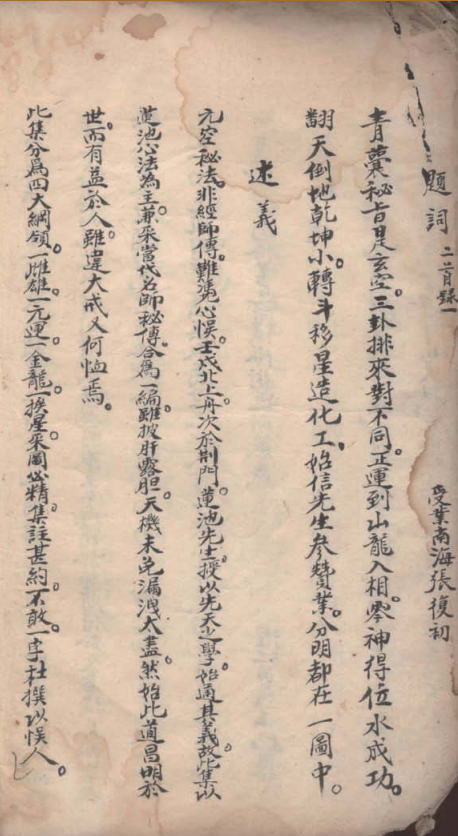 題詞 二首錄一 受業南海張復初
青囊秘旨是玄空。三卦排來對不同。正運到山龍入相。零神得位水成功。
翻天倒地乾坤小。轉斗移星造化工。始信先生參贊業。分明都在一圖中。
述義
元空秘法。非經師傳。難憑心悞。壬戌北上。舟次於荆門。蓮池先生。授以先天之學。始通其義。故此集以
蓮池心法為主。兼采當代名師秘傳。合為一編。雖披肝露胆。天機未免漏洩大盡。然始此道昌明於
世。而有益於人。雖違大戒又何恤焉。
此集分為四大綱領。一雌雄。一元運。一金龍。一挨星。采圖必精。集註甚約。不敢一字杜撰以悞人。